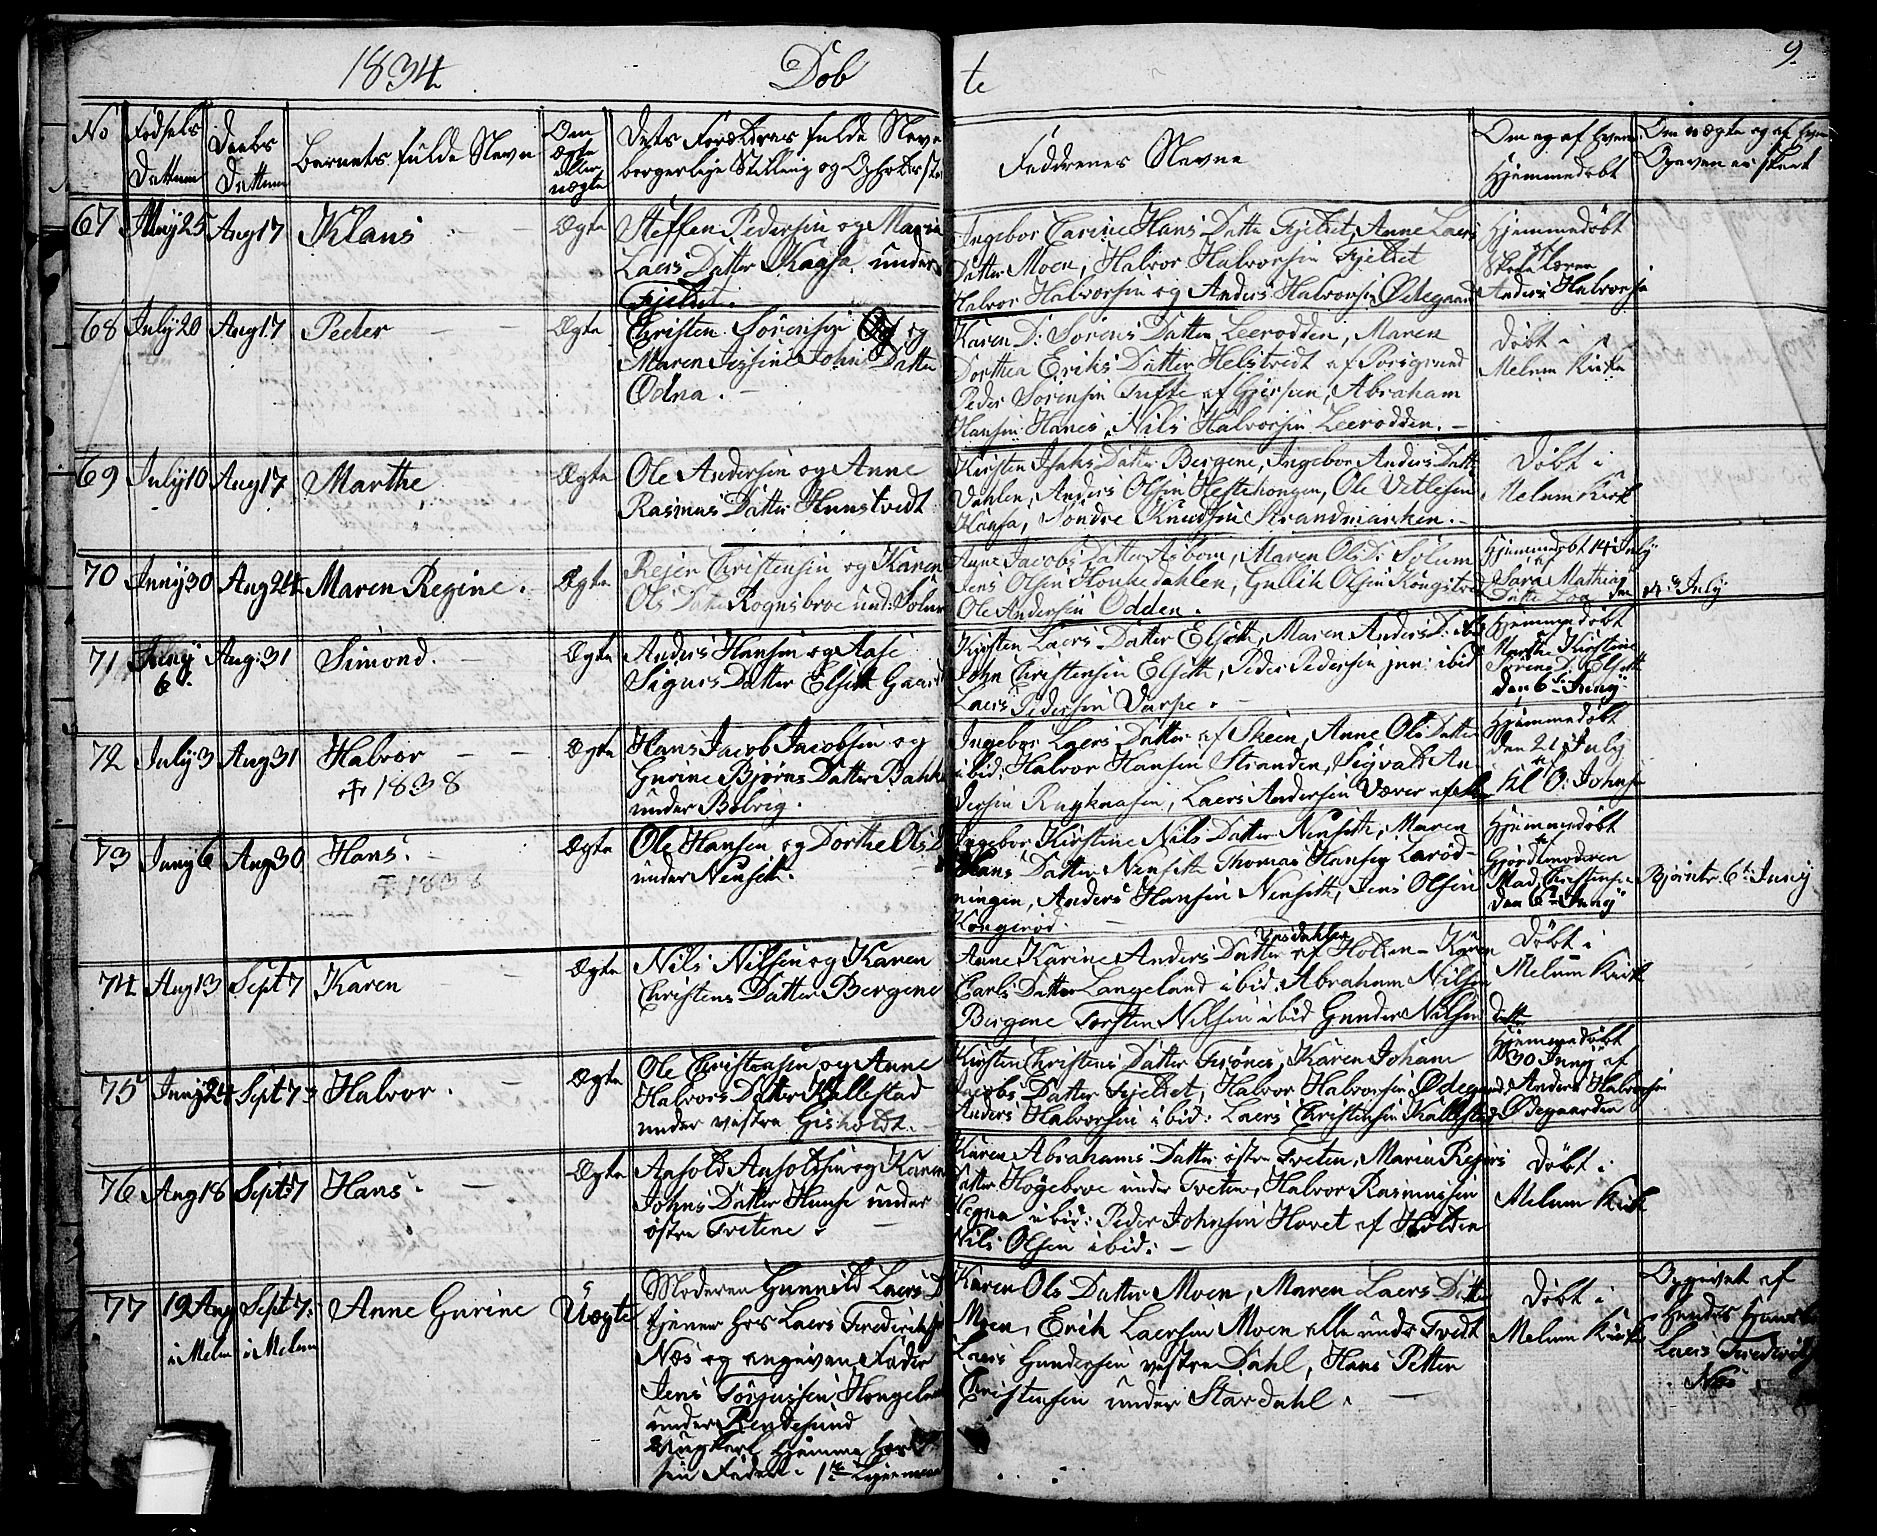 1834 Døbte 9
No Fødsels Dattum Daabs Dattum Barnets fulde Navn Om Ægte eller uægte Dets Forældres fulde Navn borgerlige Stilling og Opholds
Faddrenes Navne Om og af hvem Hjemmedøbt Om uægte og af hvem Opgaven er skeet
67 May 25 Aug 17 Klaus Ægte Steffen Pedersen og Maria
Laers Datter Kaasa under
Fjeldet.
Ingebor Carine Hans Datter Fjeldet, Anne Laers
Datter Moen, Halvor Halvorsen Fjeldet
Halvor Halvorsen og Anders Halvorsen Ødegaard
Hjemmedøbt
af
Skolelærer
Anders Halvorsen
68 July 20 Aug 17 Peder Ægte Christen Sørensen og
Maren Johns Datter
Odna.
Karen D: Sørens Datter Leerodden, Maren
Dorthea Eriks Datter Helstvedt af Porsgrund
Peder Sørensen Tufte af Gjerpen, Abraham
Hansen Hanes, Nils Halvorsen Leerodden.
Døbt i
Melum Kirke
69 July 10 Aug 17 Marthe Ægte Ole Andersen og Anne
Rasmus Datter Hunstvedt
Kirsten Isaks Datter Bergene, Ingebor Anders Datter
Dahlen, Anders Olsen Hestehougen, Ole Vetlesen
Haasa, Søndre Knudsen Strandmarken.
Døbt i
Melum Kirk
70 Juny 30 Aug 24 Maren Regine. Ægte Rejer Christensen og Karen
Ols Datter Rognsbroe und: Solum
Anne Jacobs Datter Aabom, Maren Ols D: Solum
Jens Olsen Houkedahlen, Gullik Olsen
Ole Andersen Odden.
Hjemmedøbt 14 July
af
Sara Mathias
Datter den 14 July
71 Juny 6 Aug: 31 Simond. Ægte Anders Hansen og Aase
Sigurs Datter Elseth
Kirsten Laers Datter Elseth, Maren Anders D:
John Christensen Elseth, Peder Pedersen jun: ibid
Laers Pedersen Varpe.
Hjemmedøbt
Marthe Kirstine
Sørens D: Elseth
den 6te Juny
72 July 3 Aug 31 Halvor Ægte Hans Jacob Jacobsen og
✝ 1838
Gurine Bjørns Datter Bakke
under Bolvig.
Ingebor Laers Datter af Skeen, Anne Ols Datter
ibid: Halvor Hansen Stranden, Sigvald An-
dersen, Laers Andersen
Hjemmedøbt
den 21 July
af
Kl O: Johnsen
73 Juny 6 Aug 30 Hans. Ægte Ole Hansen og Dorthe Ols D
✝ 1838
under Nenseth.
Ingebor Kirstine Nils Datter Nenseth, Maren
Hans Datter Nenseth Thomas Hansen Larød-
ningen, Anders Hansen Nenseth, Jens Olsen
Kongerød.
Hjemmedøbt
af
Gjordemoderen
Mad. Christensen
den 6te Juny
6te Juny
74 Aug 13 Sept 7 Karen Ægte Nils Nilsen og Karen
Christens Datter Bergene
Anne Karine Anders Datter af Holden - Karen
Carls Datter Langeland ibid: Abraham Nilsen
Bergene Torsten Nilsen ibid Gunder Nilsen
Døbt i
Melum Kirk
75 Juny 24 Sept 7 Halvor. Ægte Ole Christensen og Anne
Halvors Datter Kallestad
under vestre Gisholdt.
Kirsten Christens Datter, Karen Johane
Jacobs Datter Fjeldet, Halvor Halvorsen Ødegaard
Anders Halvorsen ibid: Laers Christensen Kallestad
Hjemmedøbt
30 Juny af
Anders Halvorsen
Ødegaarden
76 Aug 18 Sept 7 Hans. Ægte Aasold Aasoldsen og Karen
Johns Datter under
østre Tvetene.
Karen Abrahams Datter østre Tveten, Maria Rejers
Datter Høgebroe under Tveten, Halvor Rasmusen
ibid: Peder Johnsen Hovet af Holden
Nils Olsen ibid:
Døbt i
Melum Kirk
77 19 Aug Sept 7 Anne Gurine Uægte Moderen Gunnild Laers D
i Melum i Melum
tjener hos Laers Frederiksen
Næs og angiven Fader
Jens Torjussen
under
Ungkarl hjemme hos
sin Fader. 1te Lejermaal
Karen Ols Datter Moen, Maren Laers Datter
Moen, Erik Laersen Moen alle under Tvedt
Laers Gundersen vestre Dahl, Hans Petter
Christensen under Stordahl.
Døbt i
Melum Kirk
Opgivet af
Laers Frederiks
Næs